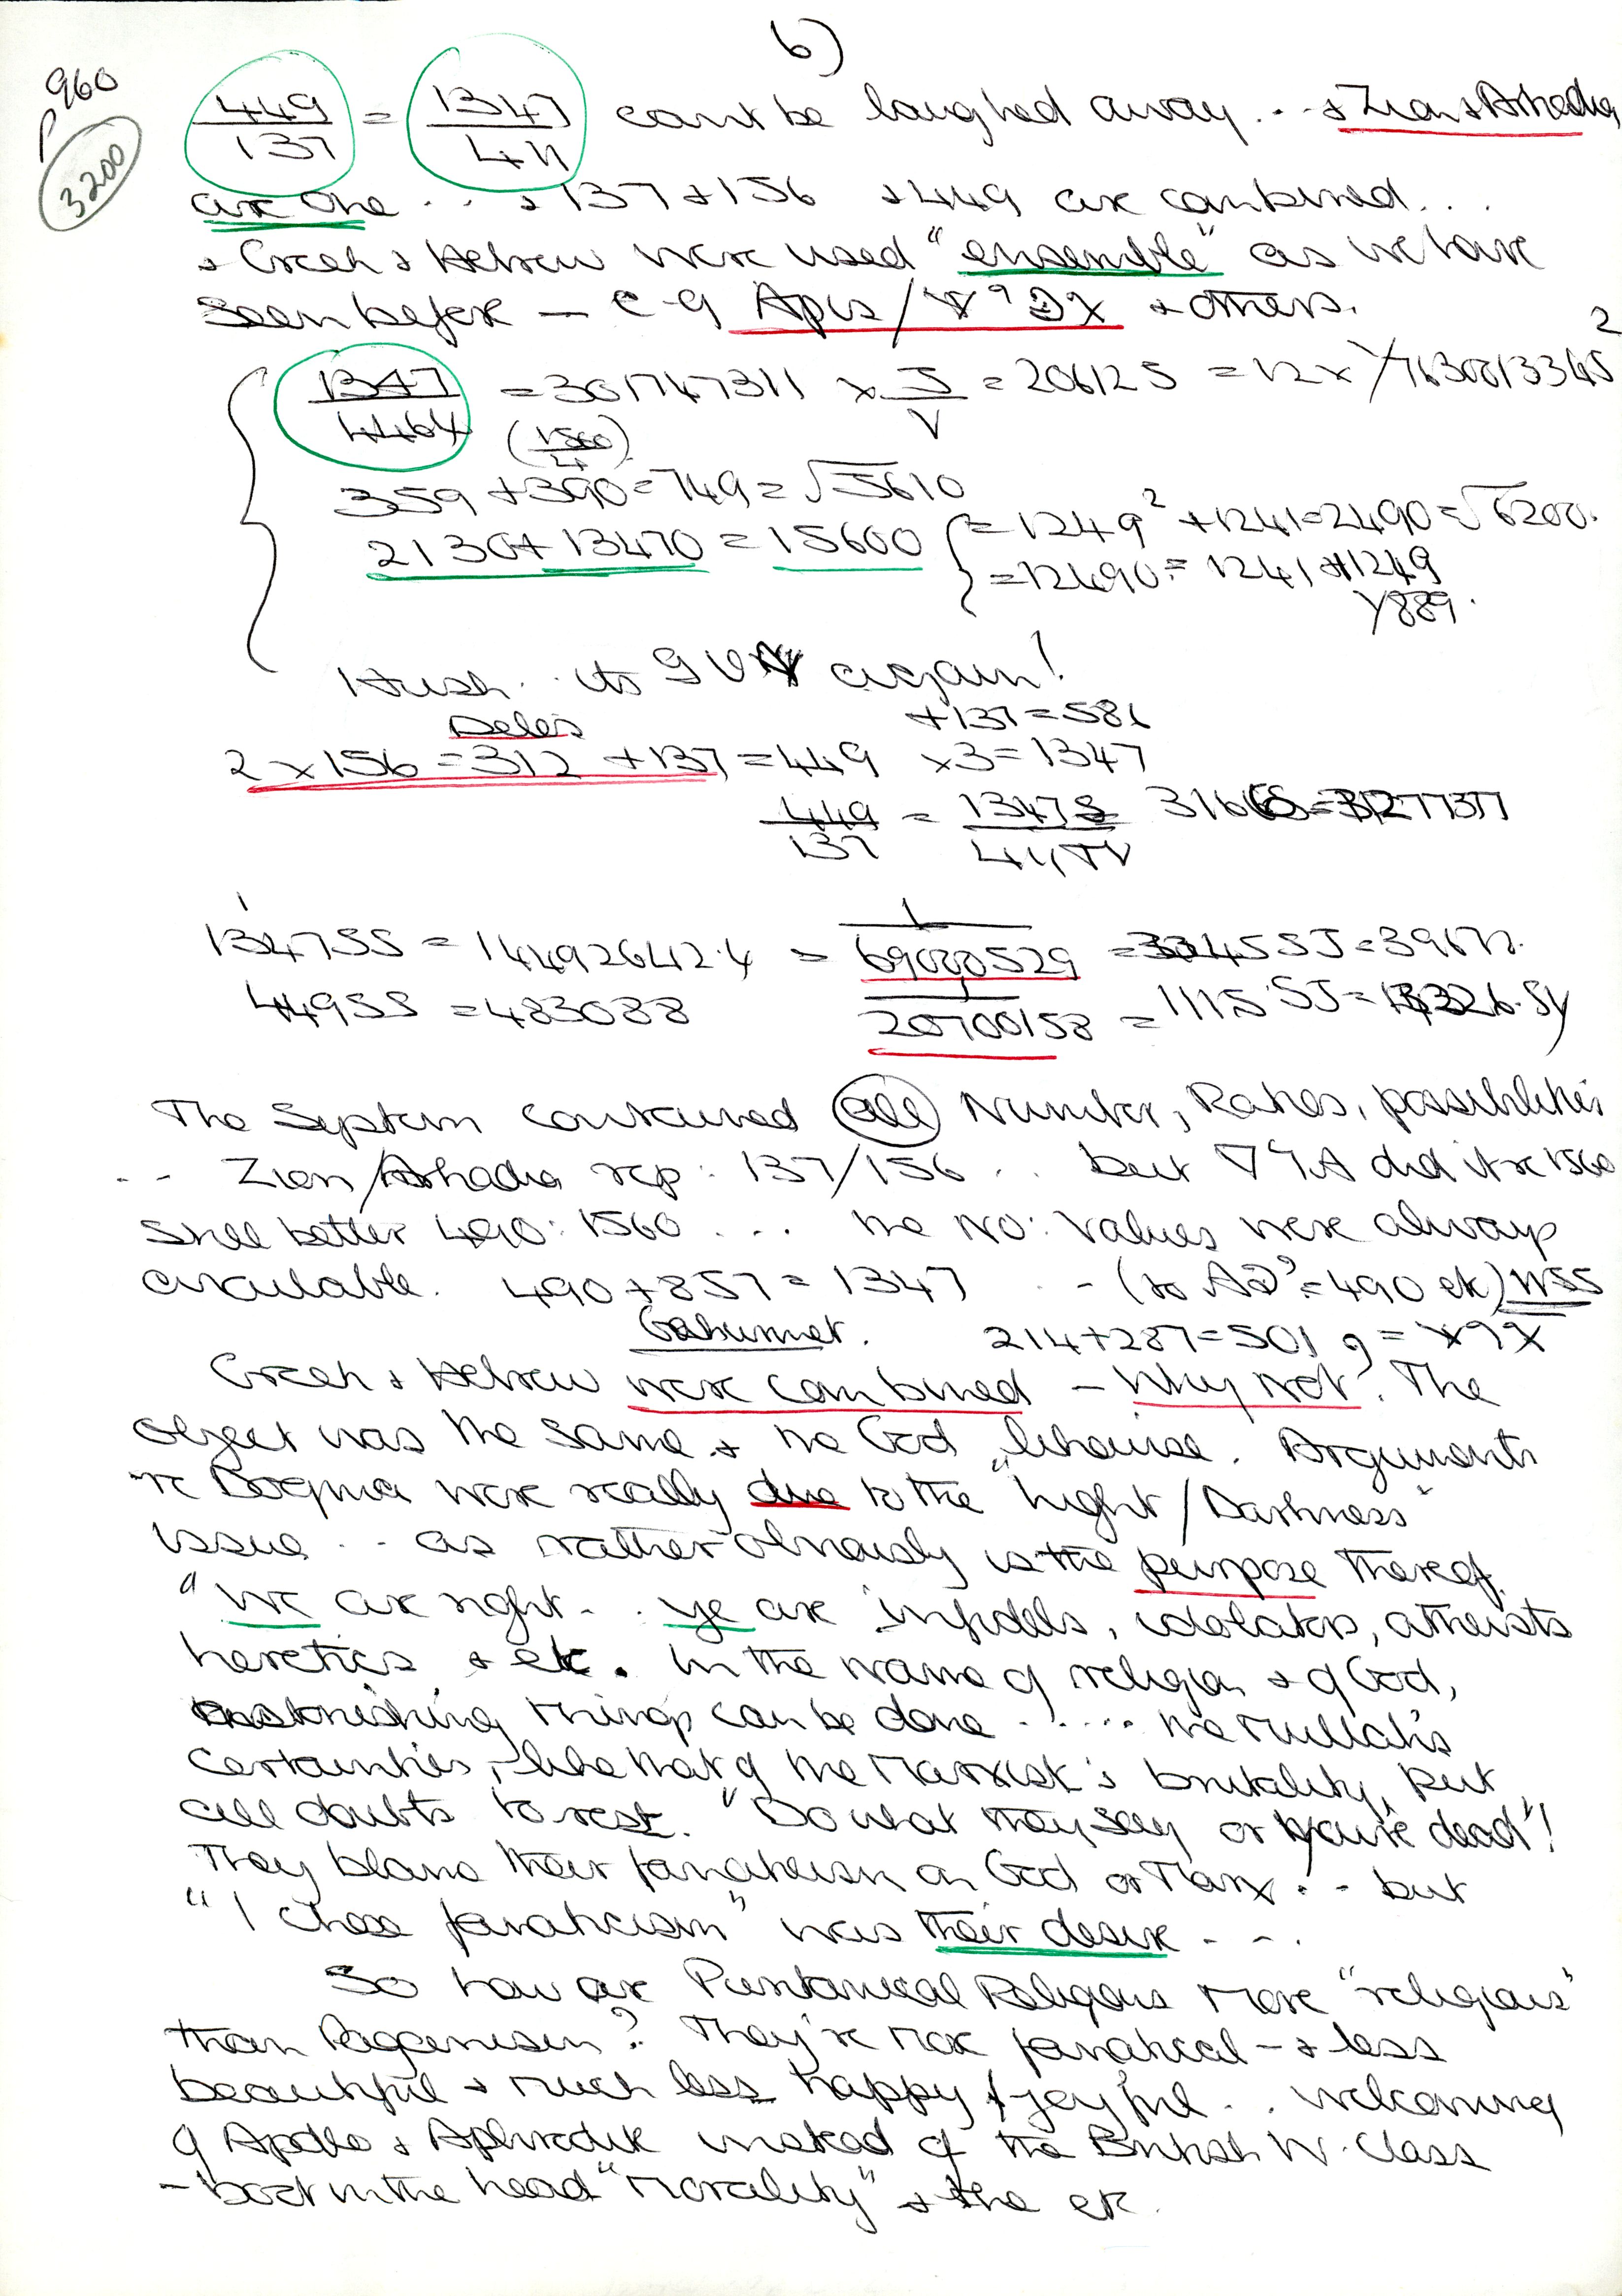 6)
p960
3200
449/137 = 1347/411 can't be laughed away . . + Zion + Arkadia
are one . . + 137 + 156 + 449 are combined . . .
+ Greek + Hebrew were used "ensemble" as we have
seen before — e-g Apis / + others.
1347 = 301747311 x = 206125 = 12 x
(1560/4)
359 + 390 = 749 = √5610
2130 + 13470 = 15600 { = 1249² + 1241 = 2490 = √6200.
= 12490 = 1241 + 1249
Hush . . its again!
Delos + 137 = 586
2 x 156 = 312 + 137 = 449 x 3 = 1347
449/137 =
1347SS = 14492642.4 = 1/69000529 = SJ = 396
449SS = 483088 1/20700158 = 1115 SJ =
The System contained all Number, Rates, possibilities
. . Zion / Arkadia rep: 137/156 . . but did it re 1560
Still better 490: 1560 . . . the No: Values were always
available. 490 + 857 = 1347 . - (to = 490 etc) WSS
214 + 287 = 501
Greek + Hebrew were combined - Why not? The
object was the same + the God likewise. Arguments
re Dogma were really due to the "Light / Darkness"
issue . . as rather obviously is the purpose thereof.
"We are right . . ye are infidels, idolators, atheists
heretics + etc. In the name of religion + of God,
astonishing things can be done . . . . . the Mullah's
certainties, like that of the Marxist's brutality, put
all doubts to rest. "Do what they say or you're dead"!
They blame their fanaticism on God or Marx . . but
"I chose fanaticism" was their desire . - .
So how are Puritanical Religions more "religious"
than Paganism? They're more fanatical - + less
beautiful + much less happy + joyful . . welcoming
of Apollo + Aphrodite instead of the British W. Class
- boot in the head "Morality" + the etc.